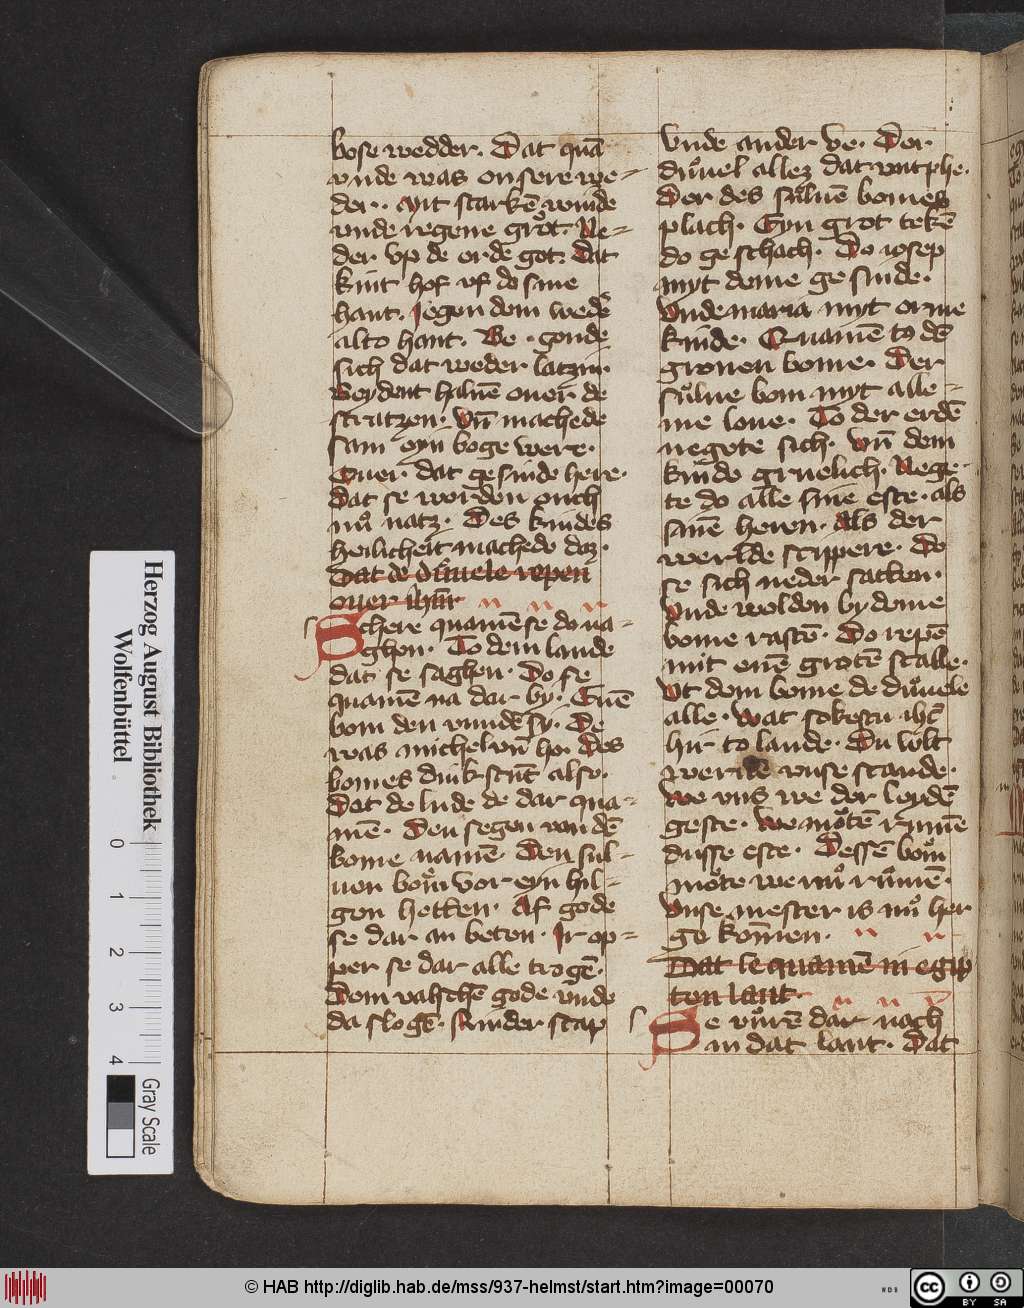 bose wedder. Dat quā
vnde was onsere we-
der. Mit starkē winde
vnde regene grot. Ne-
der vp de erde got. Dat
kint hof vf do sine
hant. Jegen dem wedē
alto hant. Be gonde
sich dat weder latzin.
Beydent haluē ouer de
stratzen. Vn̄ machede
sam eyn boge were.
Ouer dat gesinde here.
Dat se worden ouch
nů natz. Des kindes
heilicheit machede daz.
Dat de důuele repen
ouer ihm
Schere quamē se do na-
ghen. To dem lande
dat se saghen. Do se
quamē na dar by. Enē
bom den vunde sy. De
was michel vn̄ ho. Des
bomes dink stūt also.
Dat de lude de dar qua-
mē. Den segen van dē
bome namē. Den sul-
uen bom vor eyn hil-
gen hetten. Af gode
se dar an beten. Ir op-
per se dar alle trogē.
Dem valschē gode vnde
da slogē. Rinder scap
Vnde ander ve. Der
důuel allez dat untphe.
Der des suluē bomes
plach. Eyn grot tekē
do geschach. Do iosep
myt deme gesinde.
Vnde maria myt orme
kinde. Quamē to dē
gronen bome. Der
sulue bom myt alle-
me loue. To der erdē
negete sich. Vn̄ dem
kinde gruelich. Nege-
te do alle sine este. als
sinē heren. Als der
werlde scippere. Do
se sich neder satten.
Vnde wolden by deme
bome rastē. Do repē
mit enē grotē scalle.
Vt dem bome de důuele
alle. Wat sokestu ihc̄
hir to lande. Du wlt
vnse scande.
We vns we der leydē
geste. We motē rumē
dusse este. Dessē bom
mote we nů rumē.
Vnse mester is nů her
ge komen.
Dat se quamē in egip
ten lant
Se vůrē dar nach
in dat lant. Dat
Herzog August Bibliothek
Wolfenbüttel
0
1
2
3
4
Gray Scale
© HAB http://diglib.hab.de/mss/937-helmst/start.htm?image=00070
WDB
cc
BY SA